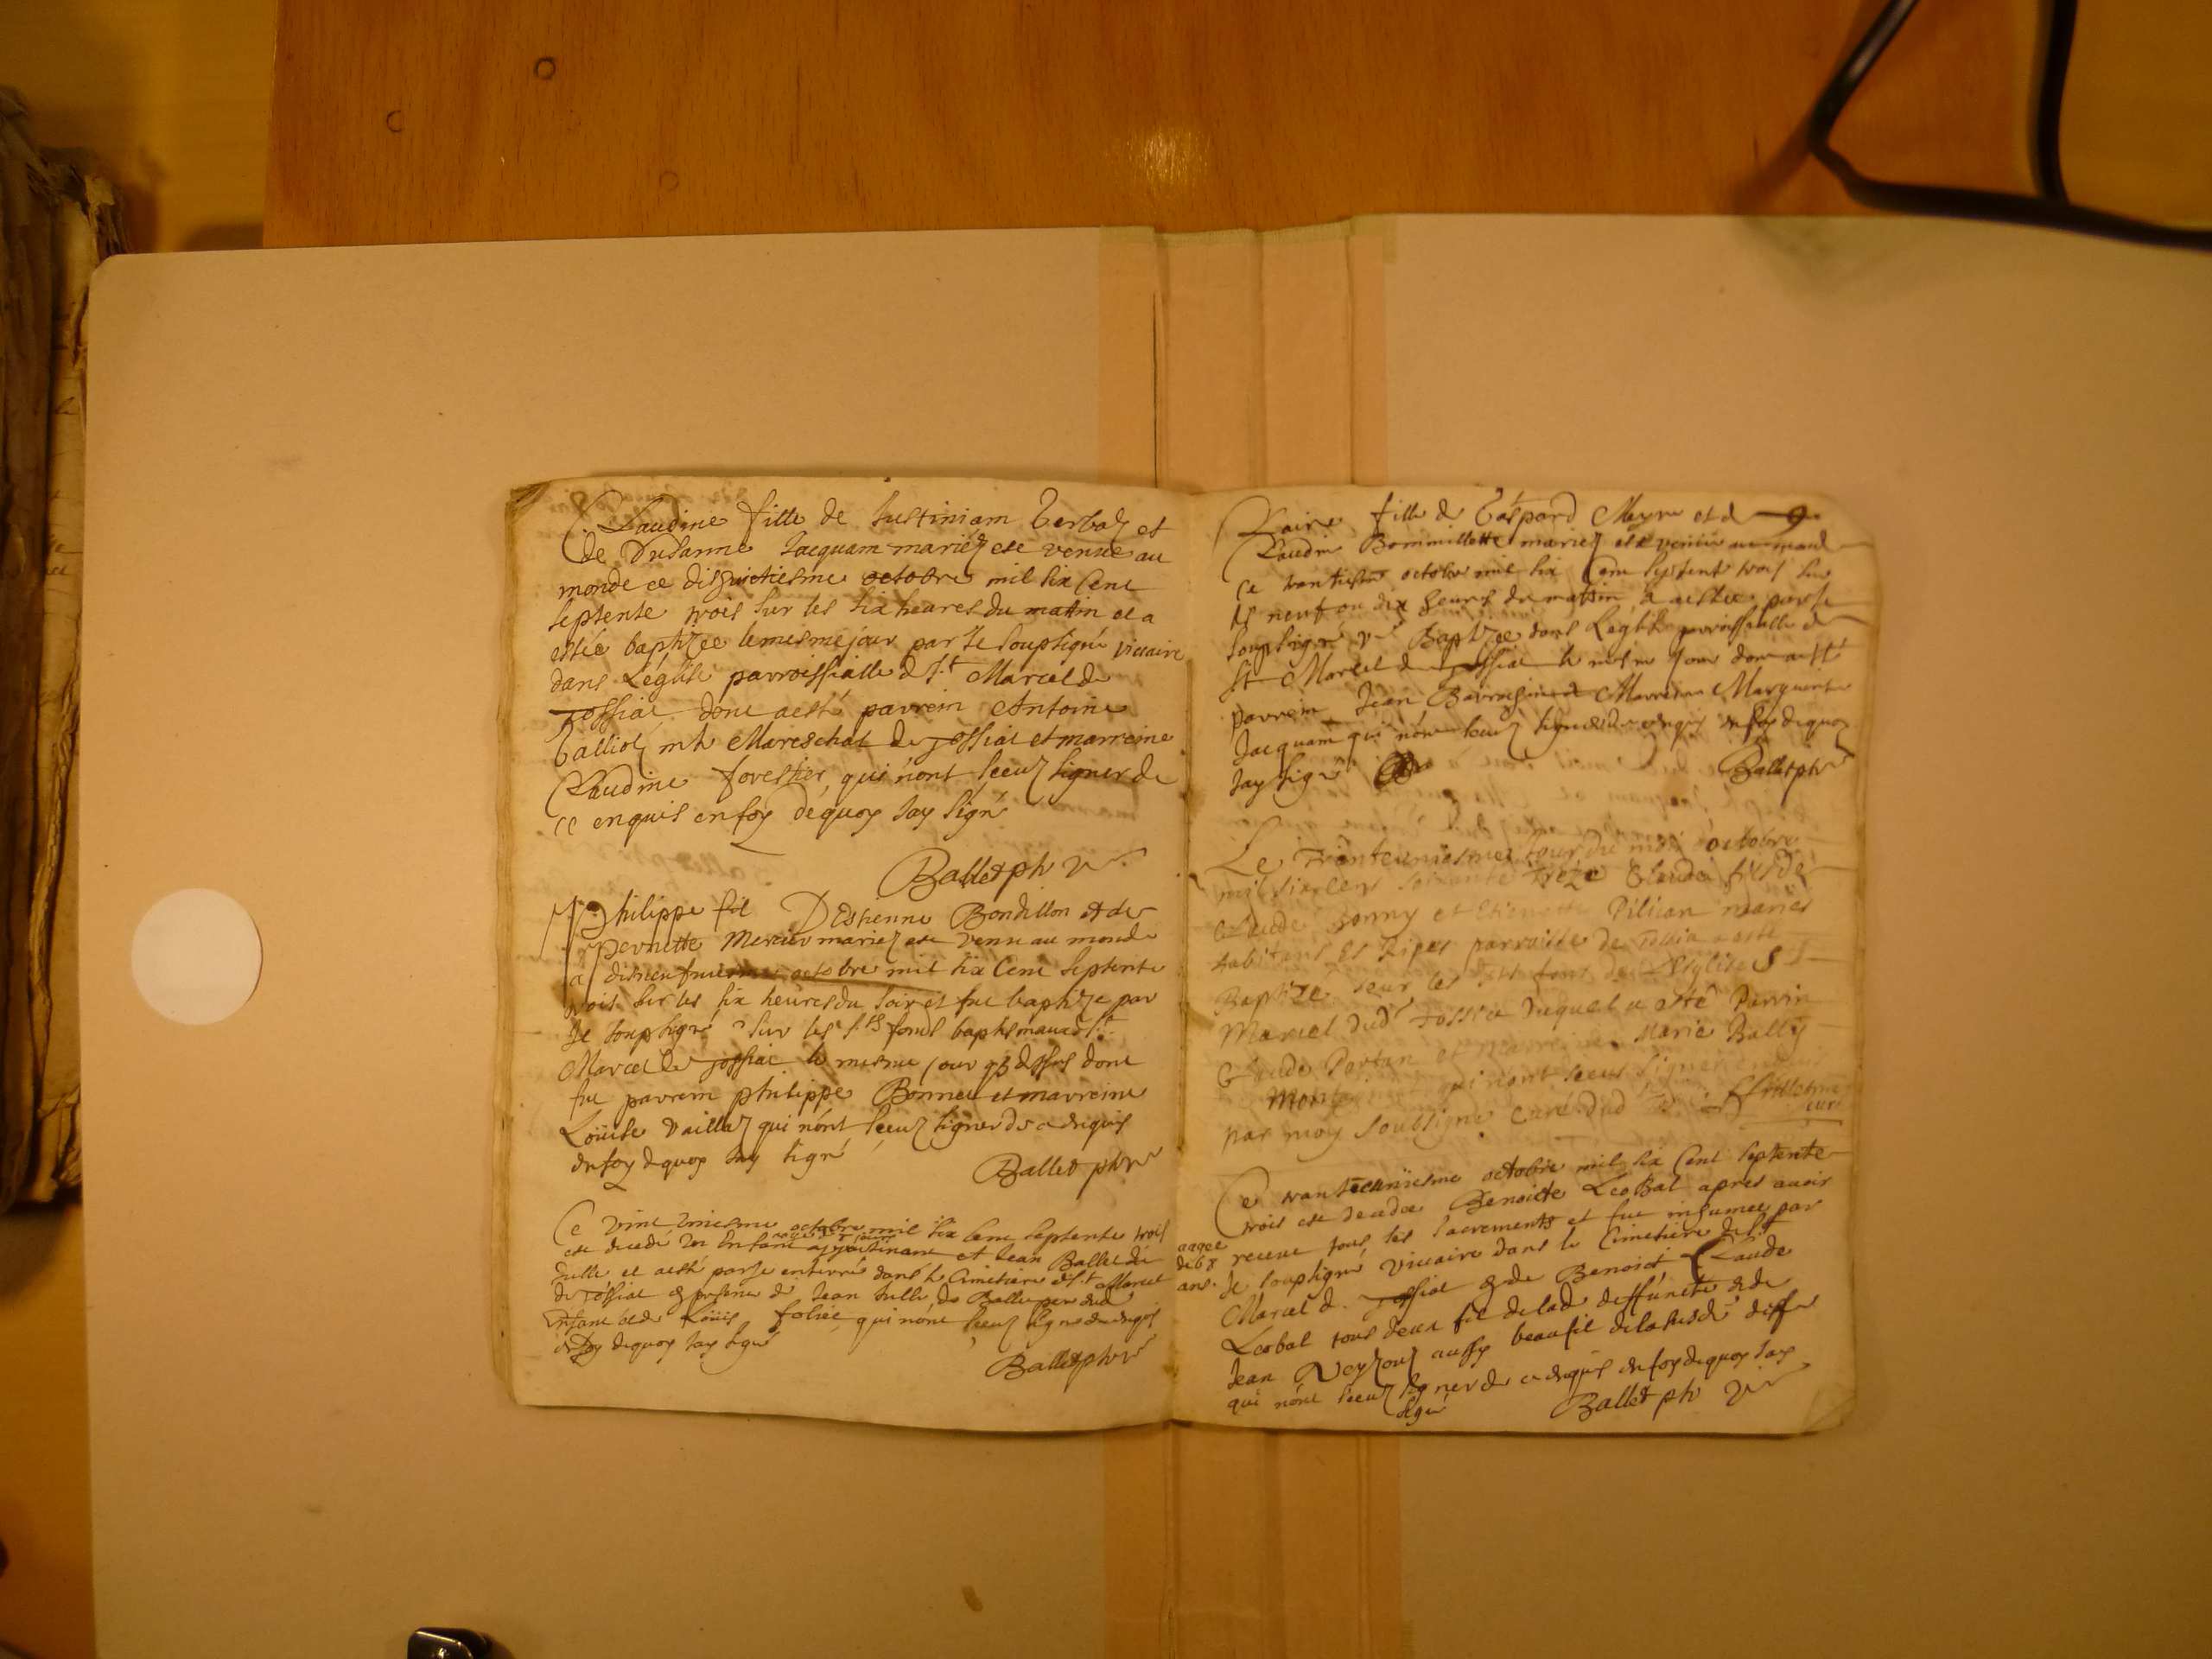 Claudine fille de Justiniam Gerbaz et
de Susanne Jacquam mariéz est venue au
monde ce dishuictiesme octobre mil six Cent
septente trois sur les six heures du matin et a
estée baptizee le mesme jour par Je soupsigné vicaire
dans Léglise parroissialle de St Marcel de
Jossiat dont a esté parrein Antoine
Galliot mre Mareschal de Jossiat et marreine
Claudine forestier, qui n'ont sceuz signer de
ce enquis en foy de quoy Jay signé
Ballet pbr v
Philippe fil D'Estienne Bondillon et de
Pernette Mercier mariez est venu au monde
a disneufiesme octobre mil six Cent septente
trois sur les six heures du soir et fut baptize par
Je soupsigné sur les sts fonds baptismaux de St
Marcel de Jossiat le mesme jour dont
fut parrein philippe Bonnet et marreine
Loüise Vaillaz qui n'ont sceuz signer de ce enquis
en foy de quoy Jay signé
Ballet pbr v
Ce vint uniesme octobre mil six Cent septente trois
est decedé un Enfant a et Jean Ballet de
et a esté par Je enterré dans le Cimetiere de St Marcel
de Jossiat presence de Jean de Ballet
Enfant et de Loüis foliet qui n'ont sceuz signer de ce enquis
en foy de quoy Jay signé
Ballet pbr v
Claire fille de Gaspard Meyre et de
Claudine Bommillette mariez est venue au monde
Ce trantiesme octobre mil six Cent septente trois sur
les neuf ou dix heures du matin a esté par Je
soupsigné v Baptizee dans Léglise parroissialle de
St Marcel de Jossiat le mesme jour dont a esté
parrein Jean et Marreine Marguerite
Jacquam qui n'ont sceuz signer de ce enquis en foy de quoy
Jay signé Ballet pbr v
Le Trenteuniesme jour du mois octobre
mil six cens soixante Treze Claude fils de
Claude Bonny et Etienette Pilican mariés
habitans Es Ripes parroisse de Jossia a esté
Baptize sur les fons de L'Esglise St
Marcel dud Jossia duquel a esté Parrin
Claude Portan et Marie Bally
qui n'ont sceus signer
par moy soubsigné Curé dud
curé
Ce trantecuniesme octobre mil six Cent septente
trois est decedee Benoiste Leobal apres avoir
aagee
de 68
ans.
receue tous les sacrements et fut inhumee par
Je soupsigné vicaire dans le Cimetiere de St
Marcel de Jossiat de Benoict Claude
Leobal tous deux fil de lad deffuncte et de
Jean Neyzouz aussy beaufil de la susde
qui n'ont sceuz signer de ce enquis en foy de quoy Jay
signé
Ballet pbr v